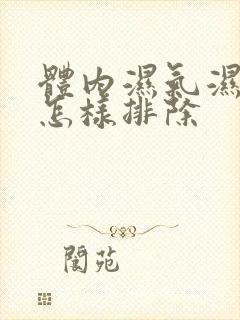 體內濕氣濕
怎樣排除
閬苑